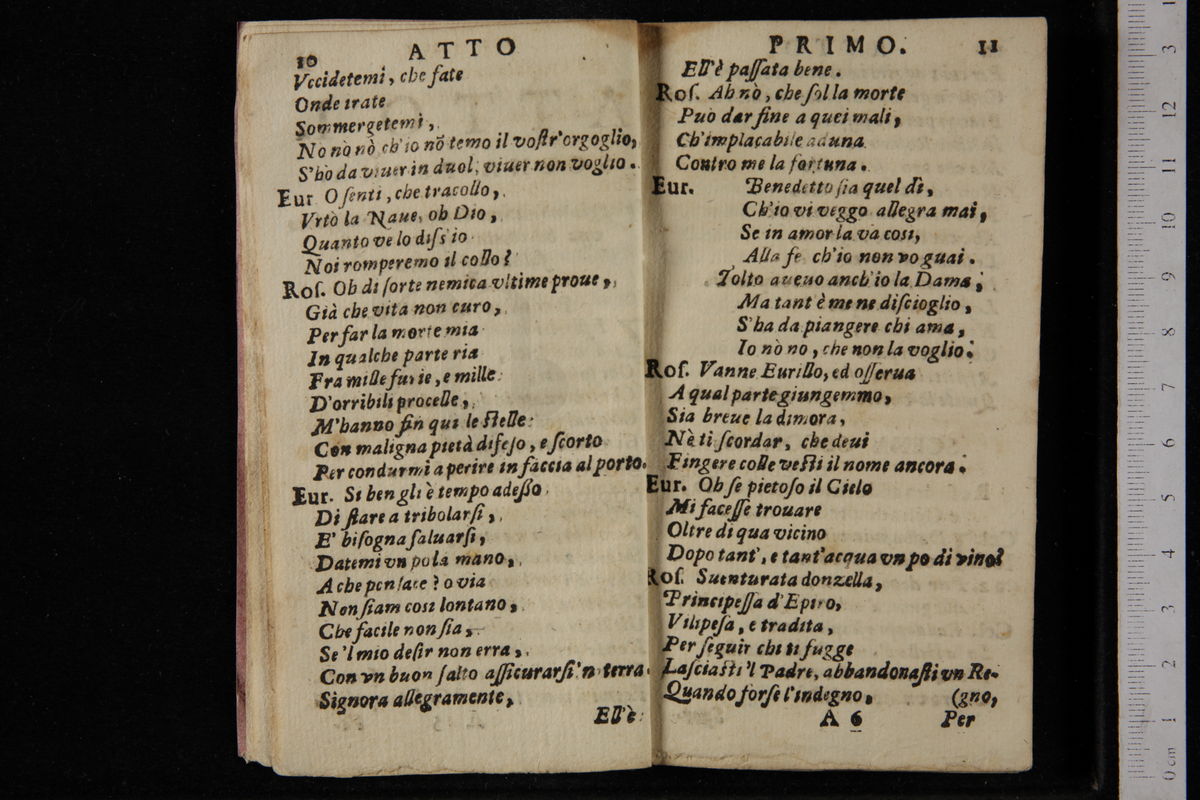 10 ATTO
Vccidetemi, che fate
Onde irate
Sommergetemi,
No nò nò ch'io nō temo il vostr'orgoglio,
S'hò da viuer in duol, viuer non voglio.
Eur. O senti, che tracollo,
Vrtò la Naue, oh Dio,
Quanto ve lo diss'io
Noi romperemo il collo?
Ros. Oh di sorte nemica vltime proue,
Già che vita non curo,
Per far la morte mia
In qualche parte ria
Fra mille furie, e mille
D'orribili procelle,
M'hanno fin qui le stelle
Con maligna pietà difeso, e scorto
Per condurmi a perire in faccia al porto.
Eur. Si ben gli è tempo adesso
Di stare a tribolarsi,
E' bisogna saluarsi,
Datemi vn po la mano,
A che pensate? o via
Non siam così lontano,
Che facile non sia,
Se'l mio desir non erra,
Con vn buon salto assicurarsi'n terra.
Signora allegramente,
Ell'è
PRIMO. 11
Ell'è passata bene.
Ros. Ah nò, che sol la morte
Può dar fine a quei mali,
Ch'implacabile aduna
Contro me la fortuna.
Eur. Benedetto sia quel dì,
Ch'io vi veggo allegra mai,
Se in amor la và così,
Alla fe ch'io non vo guai.
Tolto aueuo anch'io la Dama;
Ma tant'è me ne discioglio,
S'ha da piangere chi ama,
Io nò no, che non la voglio.
Ros. Vanne Eurillo, ed osserua
A qual parte giungemmo,
Sia breue la dimora,
Nè ti scordar, che deui
Fingere colle vesti il nome ancora.
Eur. Oh se pietoso il Cielo
Mi facesse trouare
Oltre di qua vicino
Dopo tant', e tant'acqua vn po di vino?
Ros. Suenturata donzella,
Principessa d'Epiro,
Vilipesa, e tradita,
Per seguir chi ti fugge
Lasciasti'l Padre, abbandonasti vn Re-
Quando forse l'indegno, (gno,
A 6 Per
0 cm 1 2 3 4 5 6 7 8 9 10 11 12 13